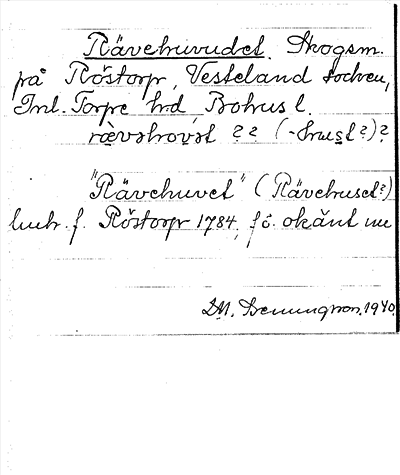 Rävehuvudet. Skogsm.
på Röstorp, Vesteland socken,
Inl. Torpe hd, Bohus l.
rævshrovst ?? (-hust?)?
"Rävehuvet" (Rävehuset?)
luh. f. Röstorp 1784, f.ö. okänt nu
Bennungson. 1940.